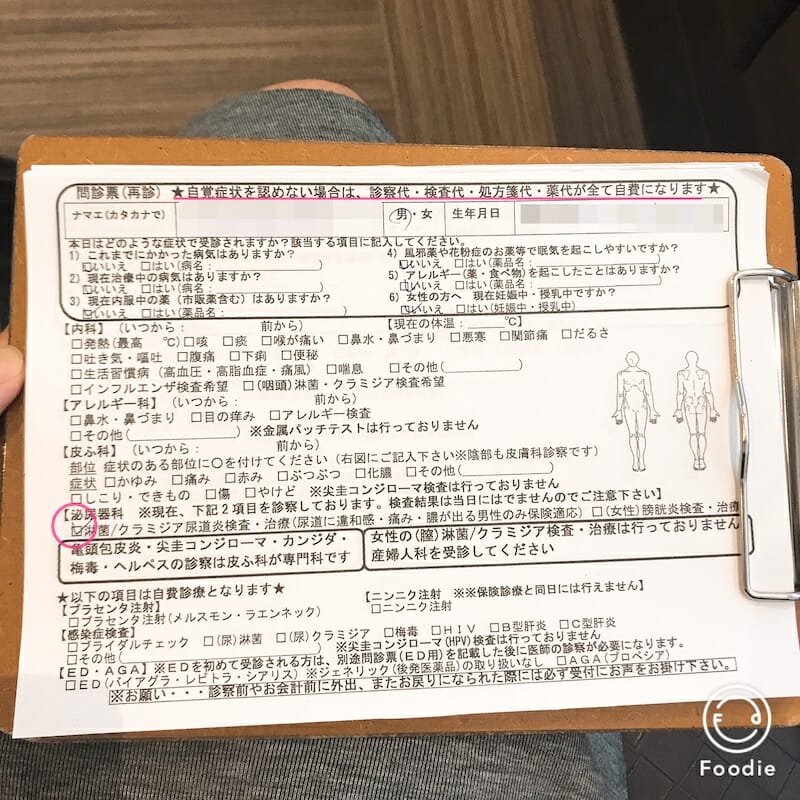 問診票(再診) ★自覚症状を認めない場合は、診察代・検査代・処方箋代・薬代が全て自費になります★
ナマエ(カタカナで) 男・女 生年月日
本日はどのような症状で受診されますか?該当する項目に記入してください。
1) これまでにかかった病気はありますか?
☑いいえ □はい(病名: )
2) 現在治療中の病気はありますか?
☑いいえ □はい(病名: )
3) 現在内服中の薬(市販薬含む)はありますか?
☑いいえ □はい(薬品名: )
4) 風邪薬や花粉症のお薬等で眠気を起こしやすいですか?
☑いいえ □はい(薬品名: )
5) アレルギー(薬・食べ物)を起こしたことはありますか?
☑いいえ □はい(薬品名: )
6) 女性の方へ 現在妊娠中・授乳中ですか?
☑いいえ □はい(妊娠中・授乳中)
【内科】(いつから: 前から) 【現在の体温: ℃】
□発熱(最高 ℃)□咳 □痰 □喉が痛い □鼻水・鼻づまり □悪寒 □関節痛 □だるさ
□吐き気・嘔吐 □腹痛 □下痢 □便秘
□生活習慣病(高血圧・高脂血症・痛風) □喘息 □その他( )
□インフルエンザ検査希望 □(咽頭)淋菌・クラミジア検査希望
【アレルギー科】(いつから: 前から)
□鼻水・鼻づまり □目の痒み □アレルギー検査
□その他( ) ※金属パッチテストは行っておりません
【皮ふ科】(いつから: 前から)
部位 症状のある部位に○を付けてください(右図にご記入下さい※陰部も皮膚科診察です)
症状 □かゆみ □痛み □赤み □ぶつぶつ □化膿 □その他( )
□しこり・できもの □傷 □やけど ※尖圭コンジローマ検査は行っておりません
【泌尿器科 ※現在、下記2項目を診察しております。検査結果は当日にはでませんのでご注意下さい】
☑淋菌/クラミジア尿道炎検査・治療(尿道に違和感・痛み・膿が出る男性のみ保険適応) □(女性)膀胱炎検査・治療
亀頭包皮炎・尖圭コンジローマ・カンジダ・
梅毒・ヘルペスの診察は皮ふ科が専門科です
女性の(膣)淋菌/クラミジア検査・治療は行っておりません
産婦人科を受診してください
★以下の項目は自費診療となります★
【プラセンタ注射】
□プラセンタ注射(メルスモン・ラエンネック)
【ニンニク注射 ※※保険診療と同日には行えません】
□ニンニク注射
【感染症検査】
□ブライダルチェック □(尿)淋菌 □(尿)クラミジア □梅毒 □HIV □B型肝炎 □C型肝炎
□その他( ) ※尖圭コンジローマ(HPV)検査は行っておりません
【ED・AGA】※EDを初めて受診される方は、別途問診票(ED用)を記載した後に医師の診察が必要になります。
□ED(バイアグラ・レビトラ・シアリス) ※ジェネリック(後発医薬品)の取り扱いなし □AGA(プロペシア)
※お願い・・・診察前やお会計前に外出、またお戻りになられた際には必ず受付にお声をお掛け下さい。
Foodie